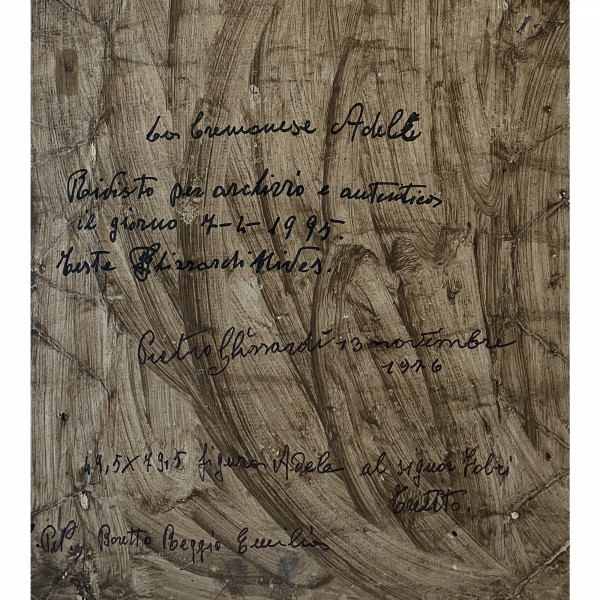 La Cremonese Adele
Rivisto per archivio e autentico
il giorno 7-4-1995.
teste Ghizzardi Nives.
Pietro Ghizzardi 13 novembre
1976
49,5x79,5 figura Adele al signor
Boretto Reggio Emilia